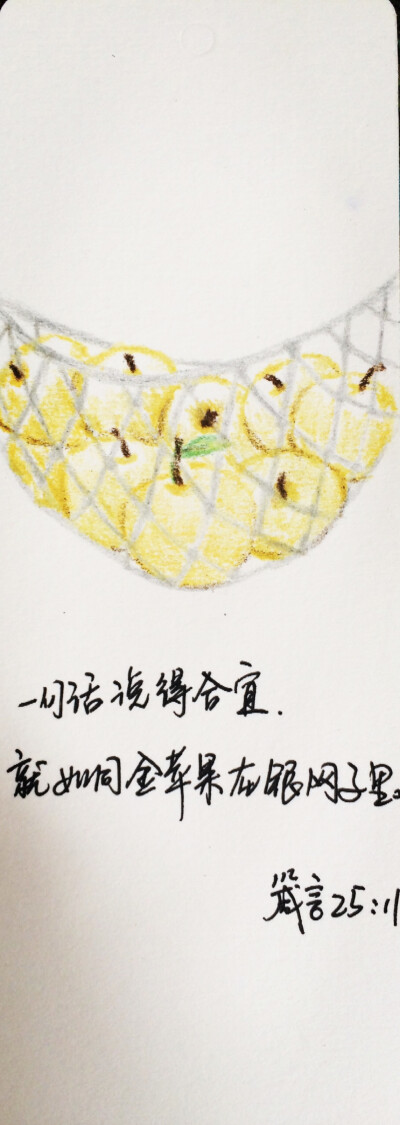 一句话说得合宜.
就如同金苹果在银网子里。
箴言25:11